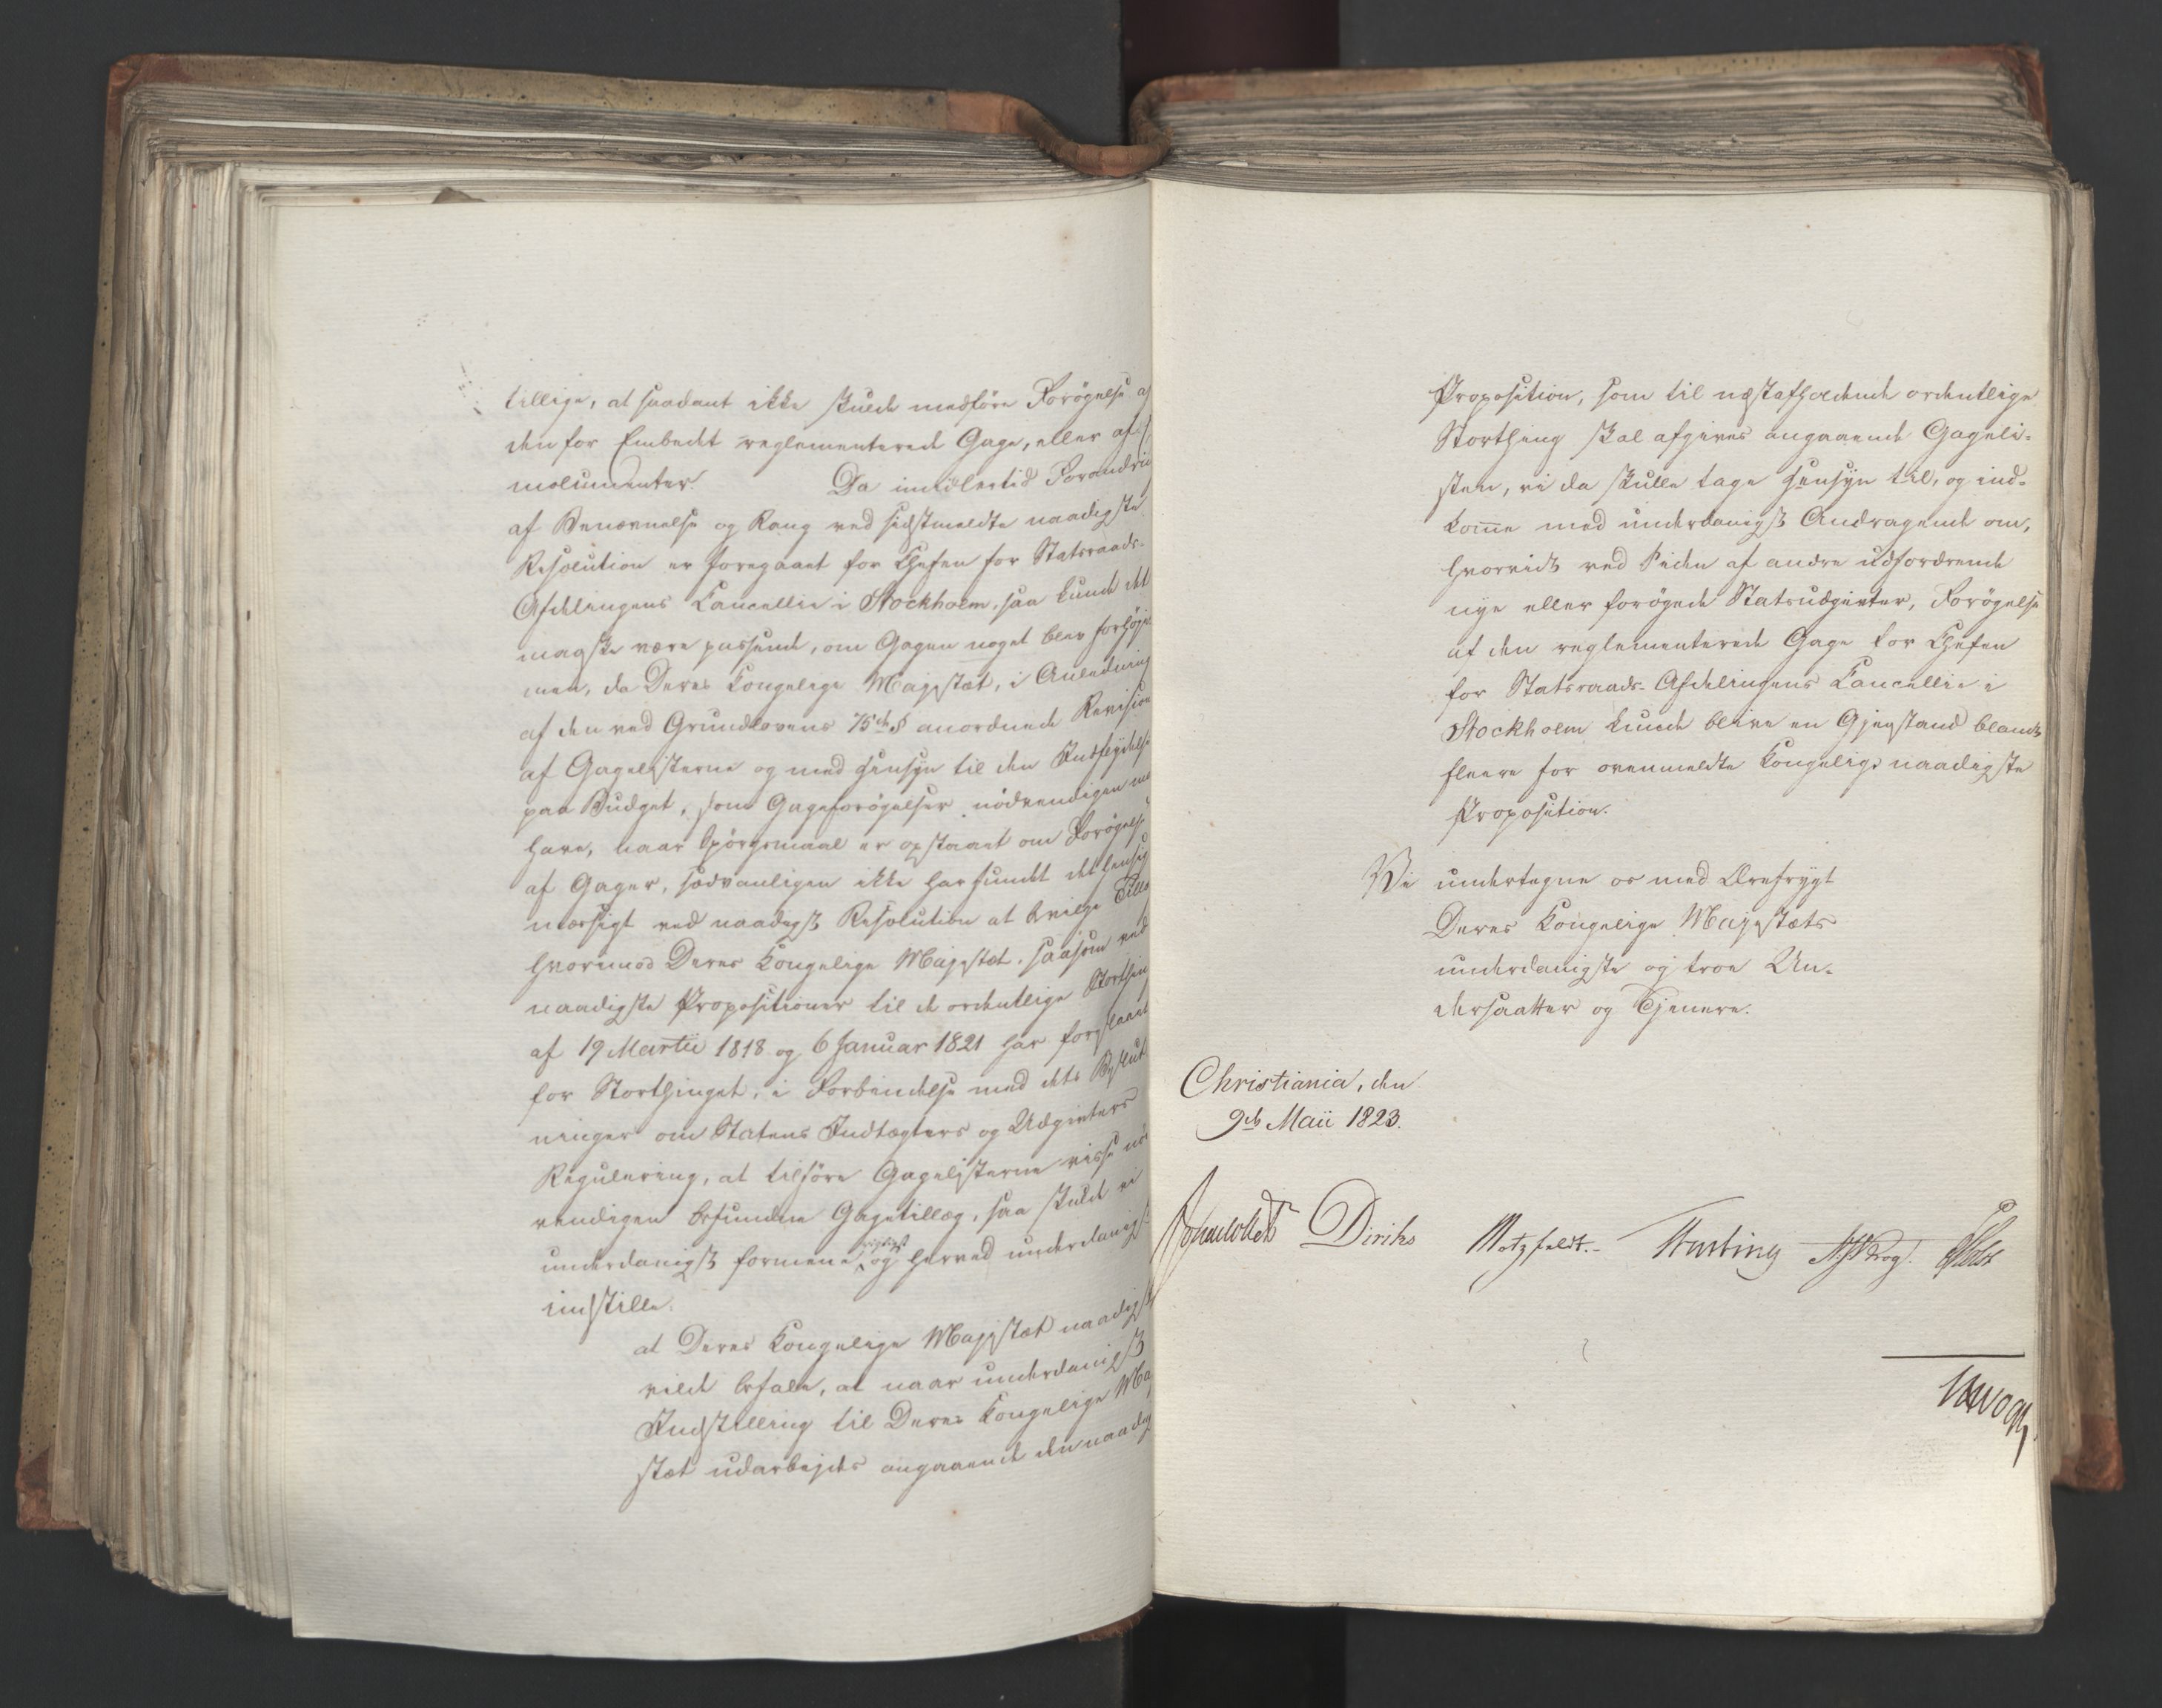 tillige, at saadant ikke skulde medføre Forøgelse af
den for Embedet reglementerede Gage, eller af E
molumenter. Da imidlertid Forandrin
af Benævnelse og Rang ved sidstmeldte naadigste
Resolution er foregaaet for Chefen for Statsraads-
Afdelingens Cancellie i Stockholm, saa kunde det
maaske være passende, om Gagen noget blev forhøjet
men, da Deres Kongelige Majestæt, i Anledning
af den ved Grundlovens 75de § anordnede Revision
af Gagelisterne og med Hensyn til den Indflydelse
paa Budget, som Gageforøgelser nødvendigen maa
have, naar Spørgsmaal er opstaaet om Forøgelse
af Gager, sædvanligen ikke har fundet det hensig
mæssigt ved naadigst Resolution at bevilge Tillæg
hvorimod Deres Kongelige Majestæt, saasom ved
naadigste Propositioner til de ordentlige Storthin
af 19 Martii 1818 og 6 Januar 1821 har foreslaaet
for Storthinget, i Forbindelse med dets Beslut
ninger om Statens Indtægters og Udgivters
Regulering, at tilføre Gagelisterne visse nød
vendigen befundne Gagetillæg, saa skulde vi
underdanigst formene rigtigst og herved underdanigst
indstille:
at Deres Kongelige Majestæt naadigst
vilde befale, at naar underdanigst
Indstilling til Deres Kongelige Maj
stæt udarbejdes angaaende den naadig
Proposition, som til næstafholdende ordentlige
Storthing skal afgives angaaende Gageli-
sten, vi da skulle tage Hensyn til, og ind-
komme med underdanigst Andragende om,
hvorvidt ved Siden af andre udfordrende
nye eller forøgede Statsudgivter, Forøgelse
af den reglementerede Gage for Chefen
for Statsraads-Afdelingens Cancellie i
Stockholm kunde blive en Gjenstand blandt
fleere for ovenmeldte Kongelige naadigste
Proposition.
Vi undertegne os med Ærefrygt
Deres Kongelige Majestæts
underdanigste og troe Un-
dersaatter og Tjenere.
Christiania, den
9de Maii 1823.
Sommerhielm Diriks Motzfeldt.- Hasting Krog. Fasting